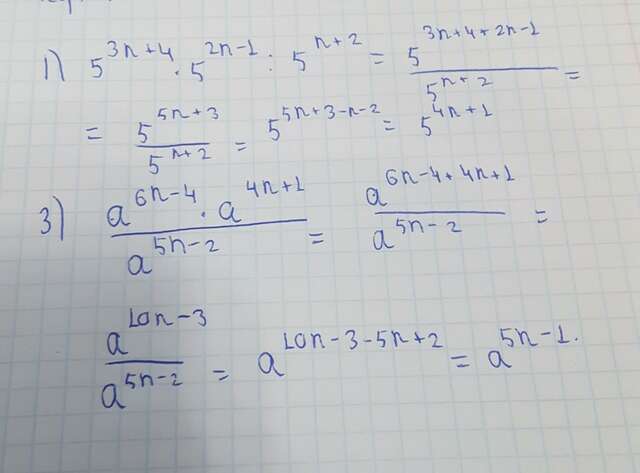 1) 5^{3n+4} · 5^{2n-1} : 5^{n+2} = \frac{5^{3n+4+2n-1}}{5^{n+2}} =
= \frac{5^{5n+3}}{5^{n+2}} = 5^{5n+3-n-2} = 5^{4n+1}
3) \frac{a^{6n-4} · a^{4n+1}}{a^{5n-2}} = \frac{a^{6n-4+4n+1}}{a^{5n-2}} =
\frac{a^{10n-3}}{a^{5n-2}} = a^{10n-3-5n+2} = a^{5n-1}.